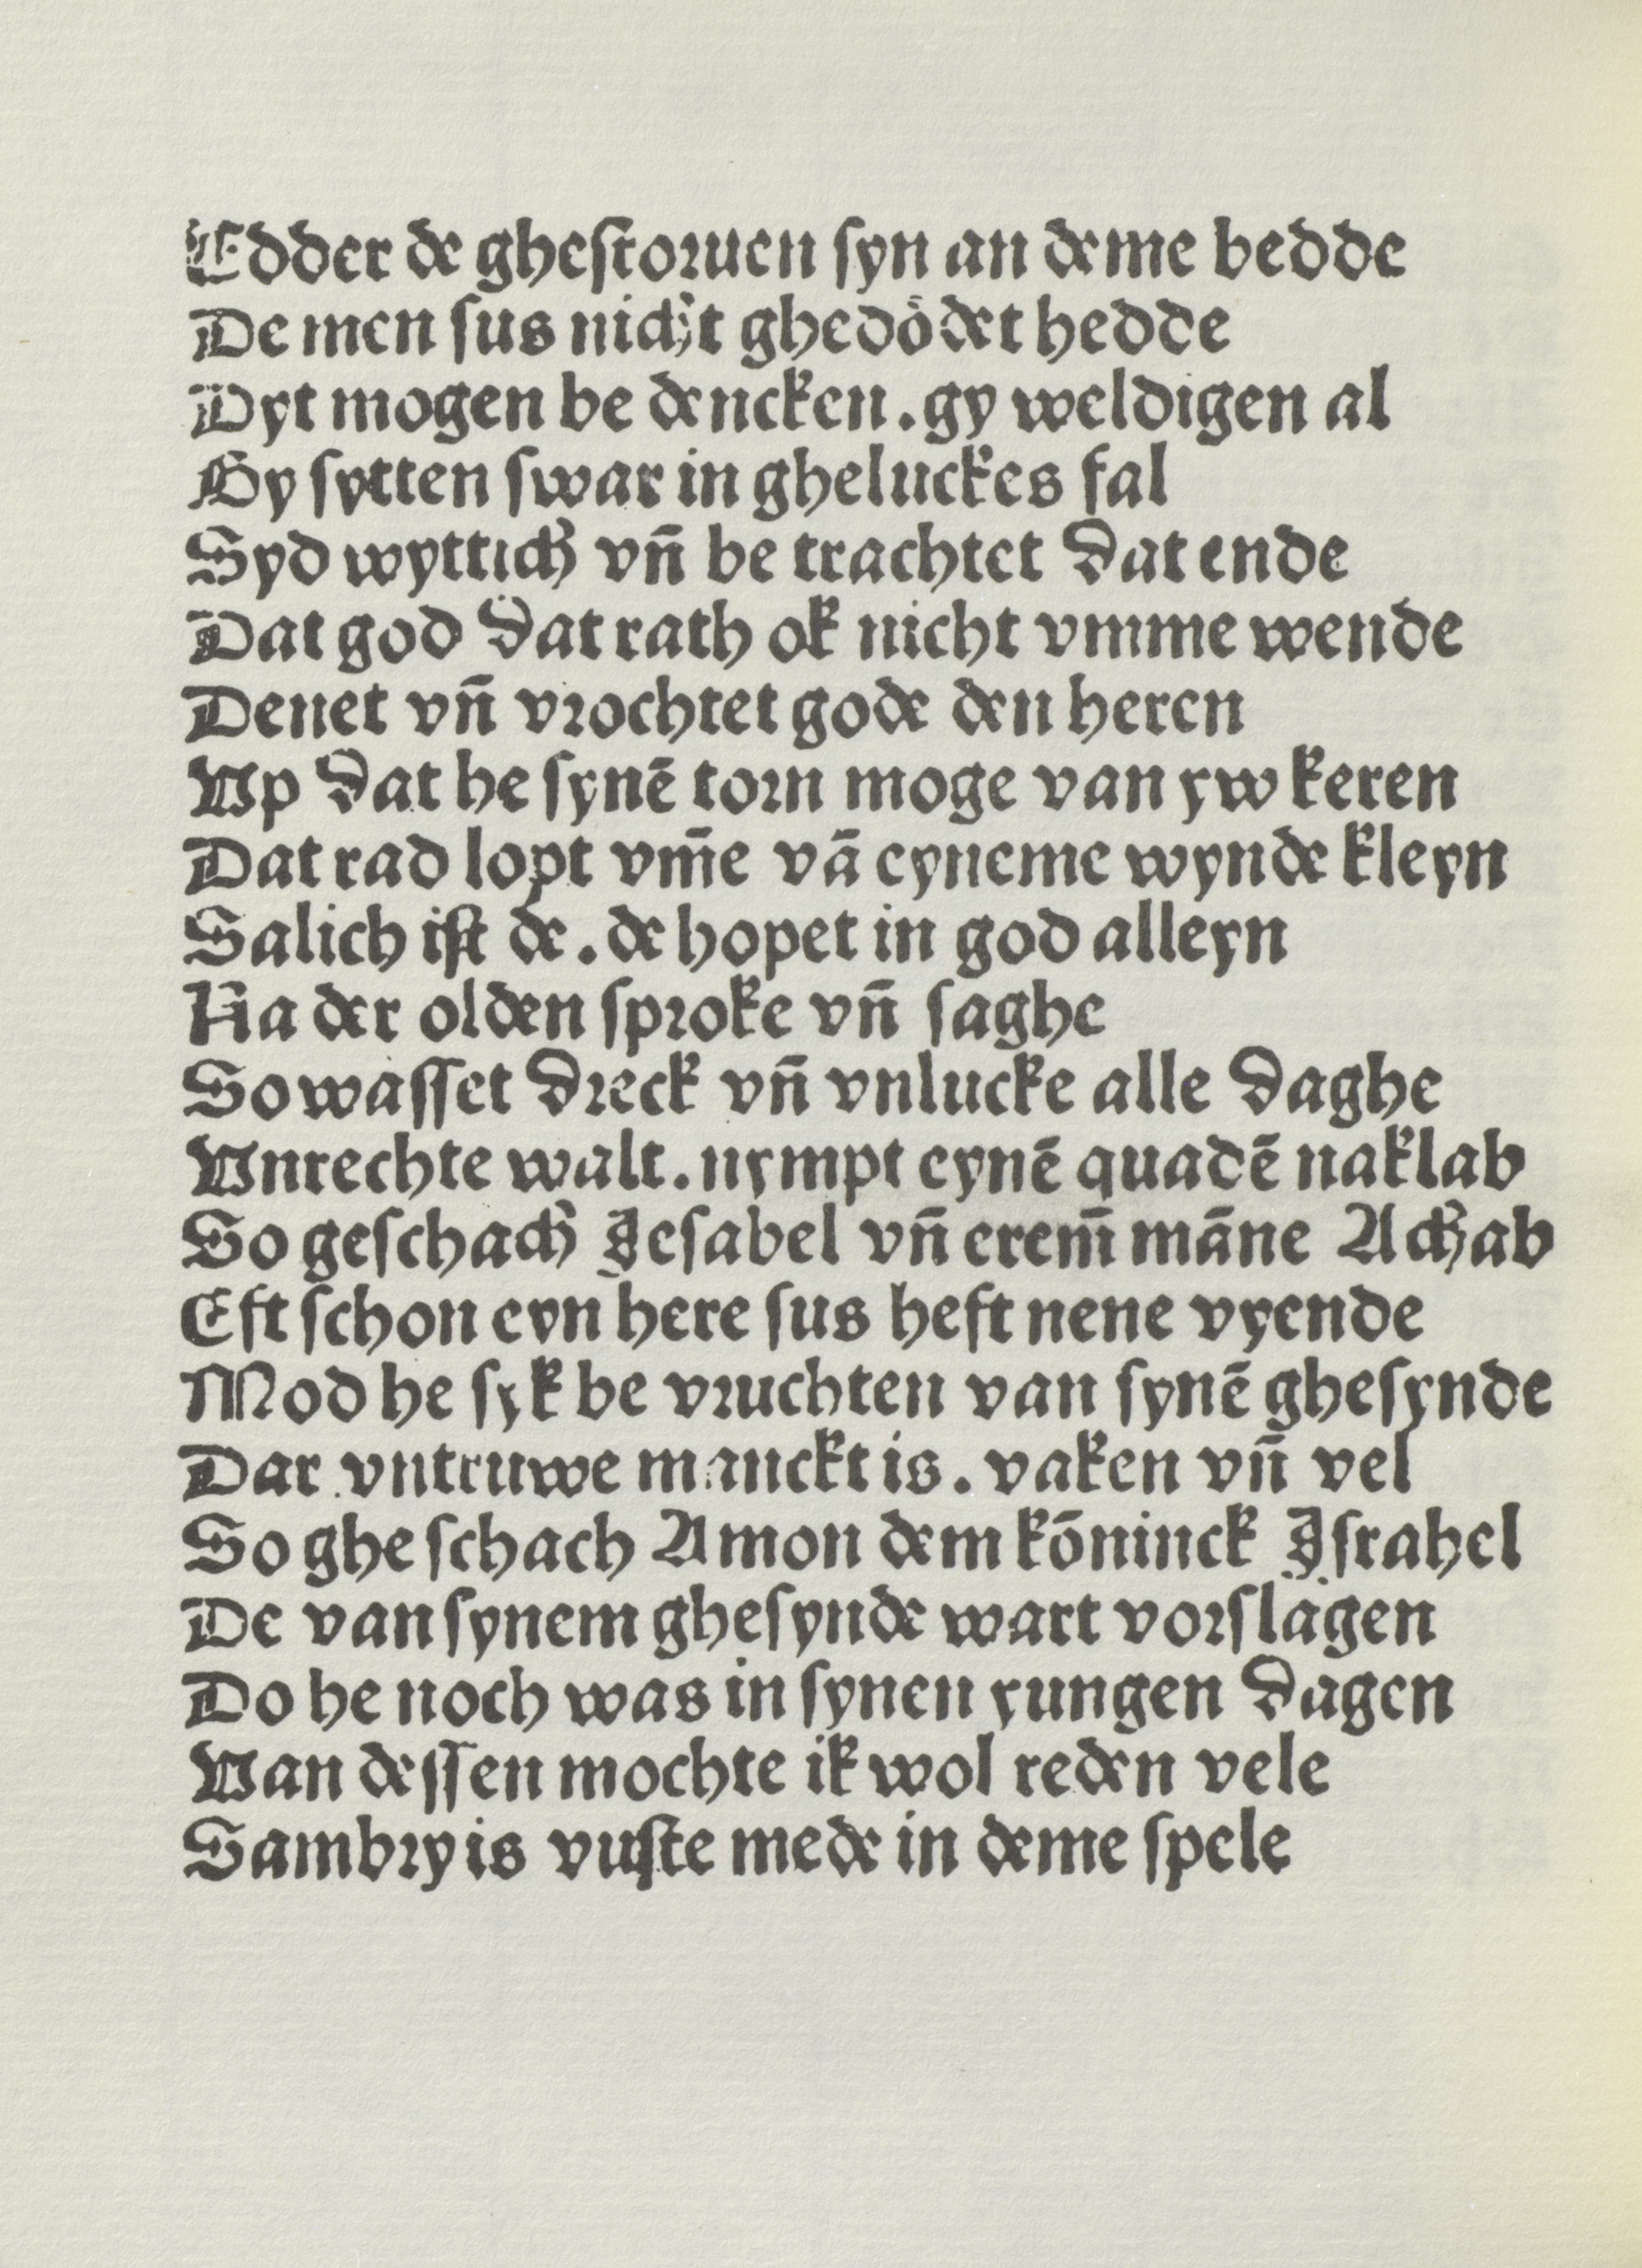 Edder de gheſtoꝛuen ſyn an deme bedde
De men ſus nicht ghedoͤdet hedde
Dyt mogen be dencken. gy weldigen al
Gy ſytten ſwar in gheluckes fal
Syd wyttich vn̄ be trachtet dat ende
Dat god dat rath ok nicht vmme wende
Denet vn̄ vꝛochtet gode den heren
Vp dat he ſynē toꝛn moge van yw keren
Dat rad lopt vm̄e vā eyneme wynde kleyn
Salich iſt de. de hopet in god alleyn
Na der olden ſpꝛoke vn̄ ſaghe
So waſſet dꝛeck vn̄ vnlucke alle daghe
Vnrechte walt. nympt eynē quadē naklab
So geſchach Jeſabel vn̄ erem̄ māne Achab
Eft ſchon eyn here ſus heft nene vyende
Mod he ſyk be vꝛuchten van ſynē gheſynde
Dar vntruwe manckt is. vaken vn̄ vel
So ghe ſchach Amon dem kōninck Jſrahel
De van ſynem gheſynde wart voꝛſlagen
Do he noch was in ſynen yungen dagen
Van deſſen mochte ik wol reden vele
Sambꝛy is vuſte mede in deme ſpele